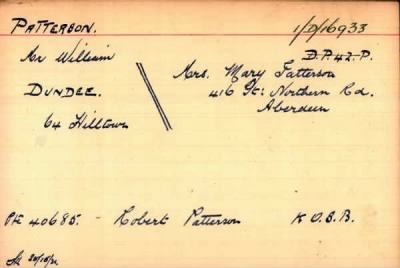 PATTERSON.
1/D/16933
D.P.42.P.
Mr William
DUNDEE.
64 Hilltown
Mrs. Mary Patterson
416 Gt: Northern Rd.
Aberdeen
Pte 40685. - Robert Patterson K.O.S.B.